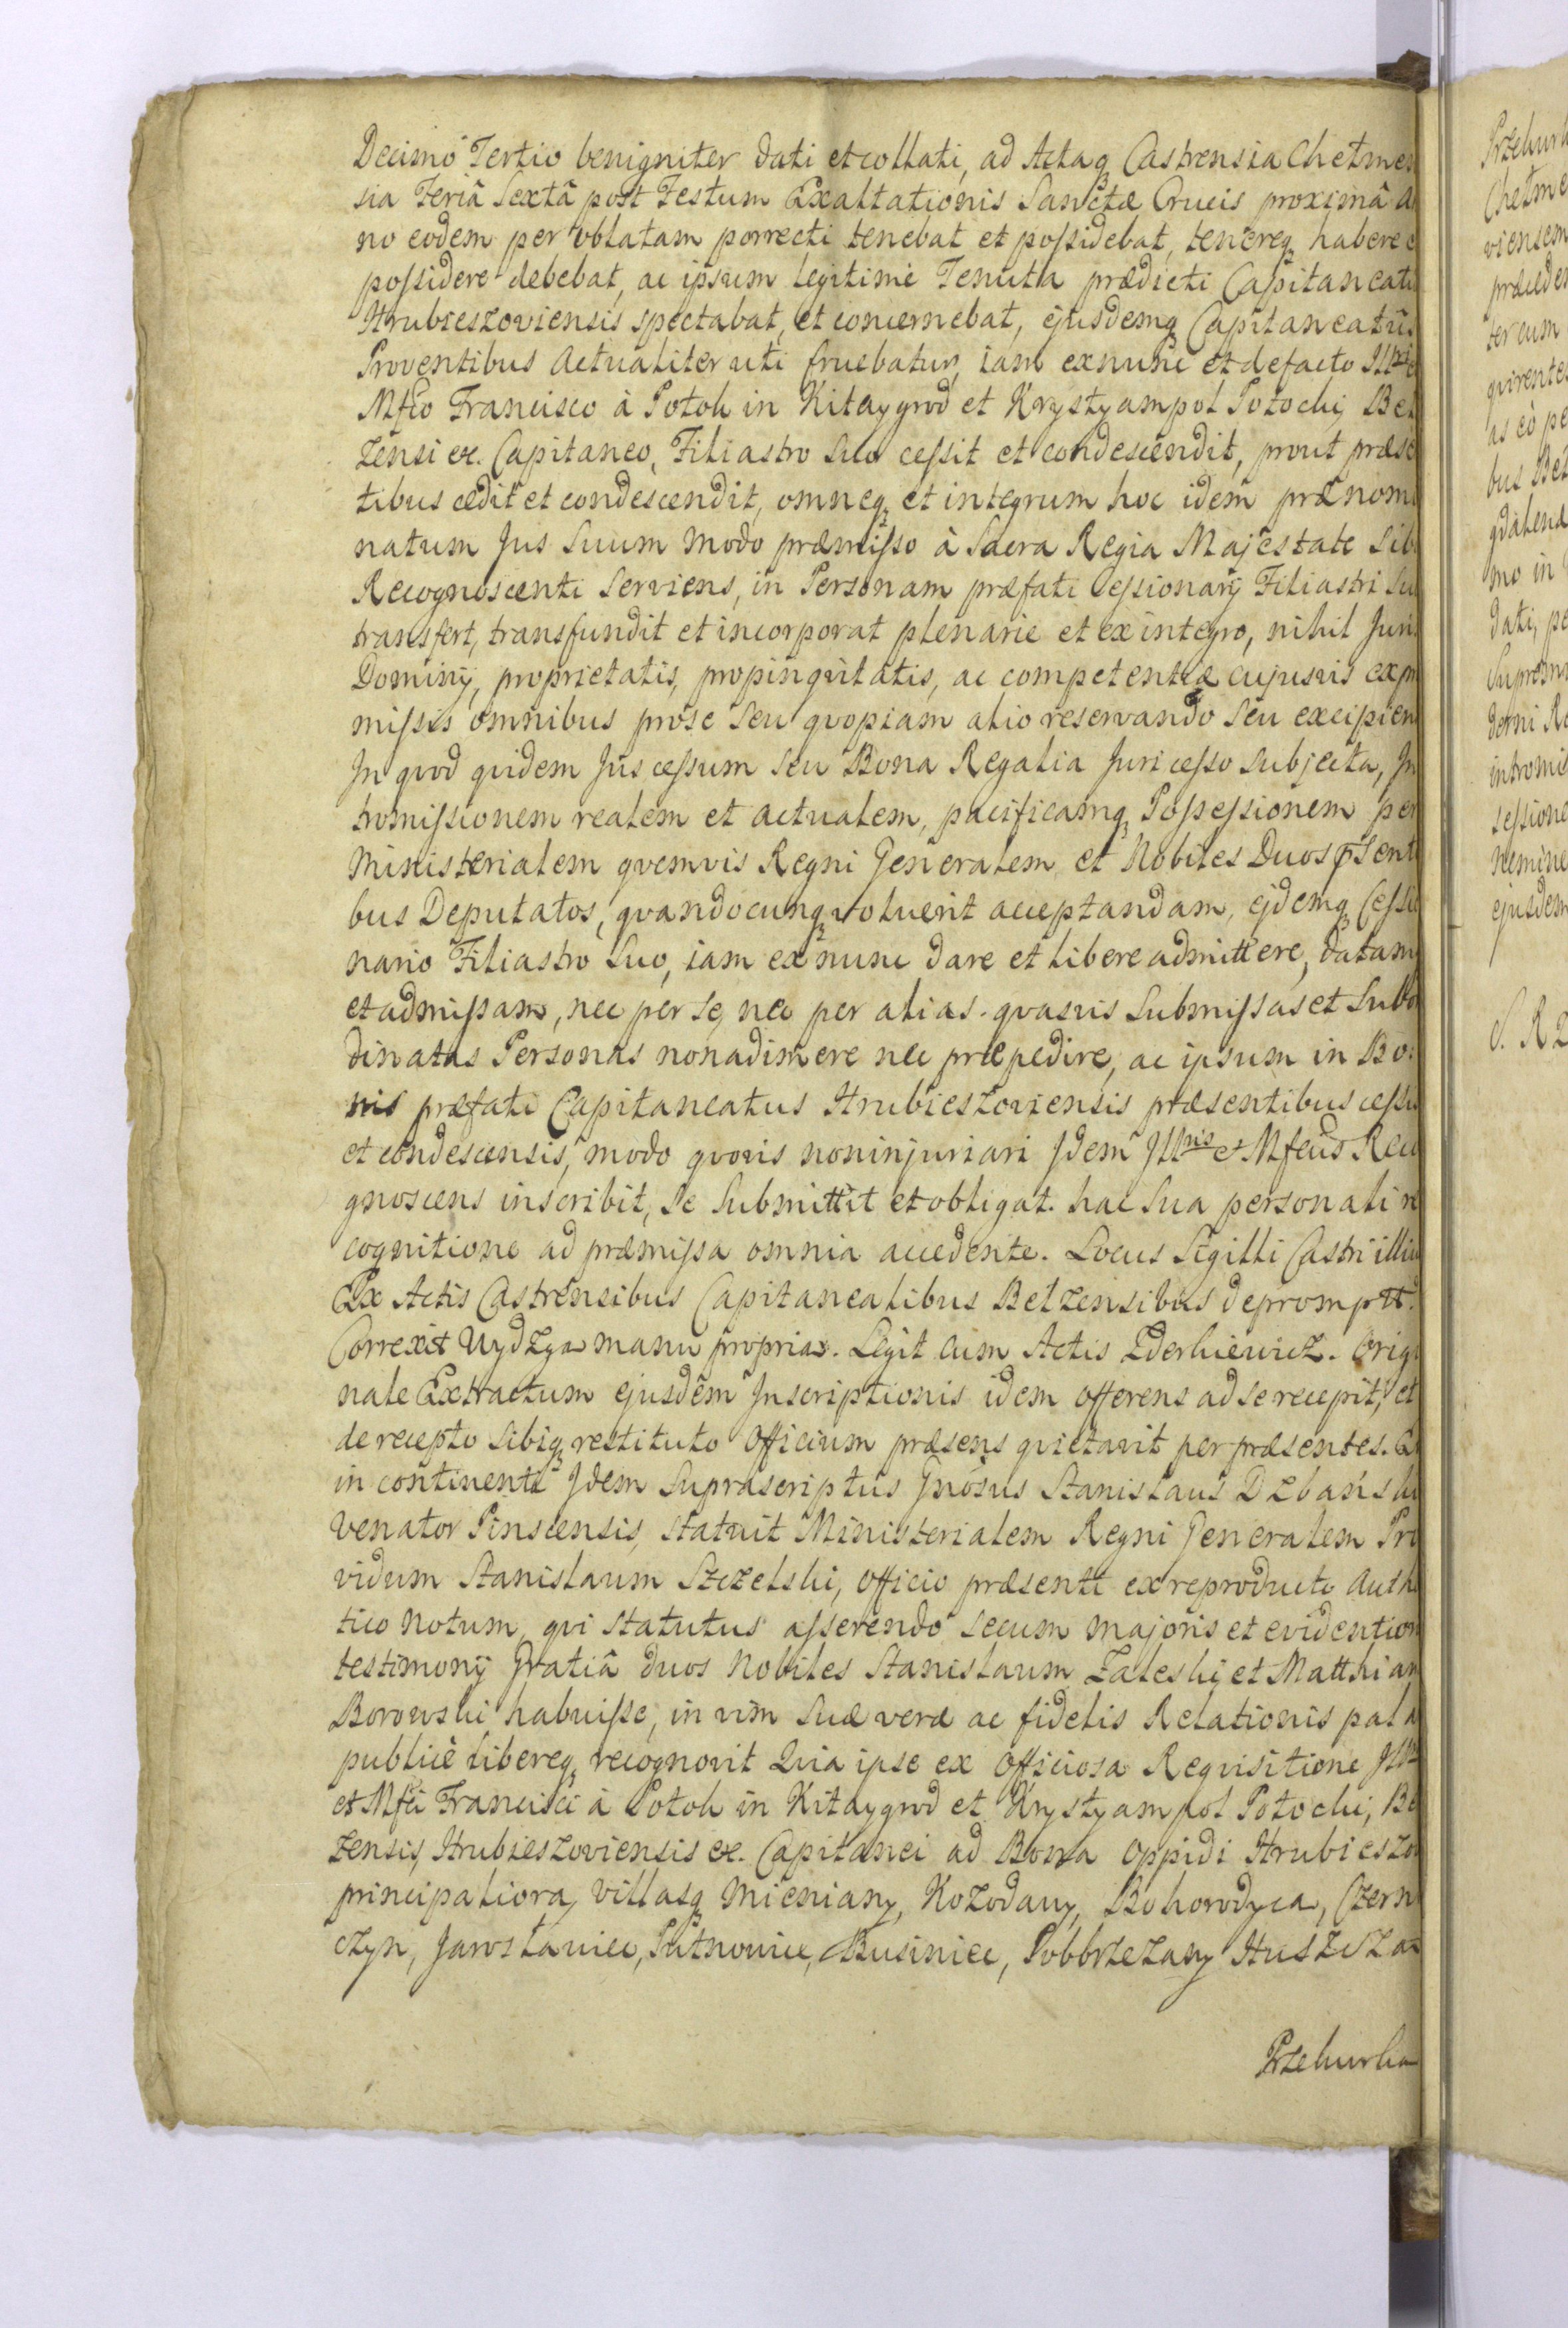 Decimo Tertio benigniter dati et collati, ad Actaq Castrensia Chełmen
sia Feriâ Sextâ post Festum Exaltationis Sanctæ Crucis proximâ A
no eodem per oblatam porrecti tenebat et poſsidebat, tenereq habere e
poſsidere debebat, ac ipsum legitime Tenuta prædicti Capitaneatu
Hrubieszoviensis spectabat, et concernebat, ejusdemq Capitaneatûs
Proventibus Actualiter uti fruebatur, iam exnunc et defacto Illri
Mfco Francisco à Potok in Kitaygrod et Krystyampol Potocki Bel
zensi etc. Capitaneo, Filiastro Suo ceſsit et condescendit, prout præse
tibus cedit et condescendit, omneq et integrum hoc idem prænomi
natum Jus Suum modo præmiſso à Sacra Regia Majestate Sibi
Recognoscenti Serviens, in Personam præfati Ceſsionarij Filiastri Su
transfert, transfundit et incorporat plenarie et ex integro, nihil Juri
Dominij, proprietatis, propinqvitatis, ac competentiæ cujusvis ex p
miſsis omnibus pro se seu qvopiam alio reservando seu excipien
In qvod qvidem Jus ceſsum seu Bona Regalia Juri ceſso Subjecta, In
tromiſsionem realem et actualem, pacificamq Poſseſsionem per
Ministerialem qvemvis Regni Generalem et Nobiles Duos p̄senti
bus Deputatos, qvandocunq voluerit acceptandam, ejdemq Ceſsio
nario Filiastro Suo, iam ex nunc dare et libere admittere, datam
et admiſsam, nec per se, nec per alias qvasvis Submiſsas et Subor
dinatas Personas non adimere nec præpedire, ac ipsum in Bo:
nis præfati Capitaneatus Hrubieszoviensis præsentibus ceſsis
et condescensis, modo qvovis non injuriari Idem Illris et Mfcus Reco
gnoscens inscribit, se Submittit et obligat. hac Sua personali re
cognitione ad præmiſsa omnia accedente. Locus Sigilli Castri illiu
Ex Actis Castrensibus Capitanealibus Belzensibus depromptt.
Correxit Uydzga manu propria. Legit cum Actis Zderkiewicz. Origi
nale Extractum ejusdem Inscriptionis idem offerens ad se recepit, et
de recepto Sibiq restituto Officium præsens qvietavit per præsentes. E
in continenti Idem Supra scriptus Gnosus Stanislaus Dzbański
Venator Pinscensis, statuit Ministerialem Regni Generalem Pro
vidum Stanislaum Szczelski, Officio præsenti ex reproducto Authe
tico Notum, qvi Statutus aſserendo Secum majoris et evidention
testimonij Gratiâ duos Nobiles Stanislaum Zaleski et Matthiam
Borowski habuiſse, in vim Suæ veræ ac fidelis Relationis pala
publicè libereq recognovit Qvia ipse ex Officiosa Reqvisitione Illris
et Mfci Francisci à Potok in Kitaygrod et Krystyampol Potocki, Be
zensis, Hrubieszoviensis etc. Capitanei ad Bona Oppidi Hrubieszo
principaliora, Villasq Mieniany, Kozodawy, Bohorodyca, Czern
czyn, Jarosławiec, Putnowice, Businiec, Pobbrzezany Huszcza
Przehurka